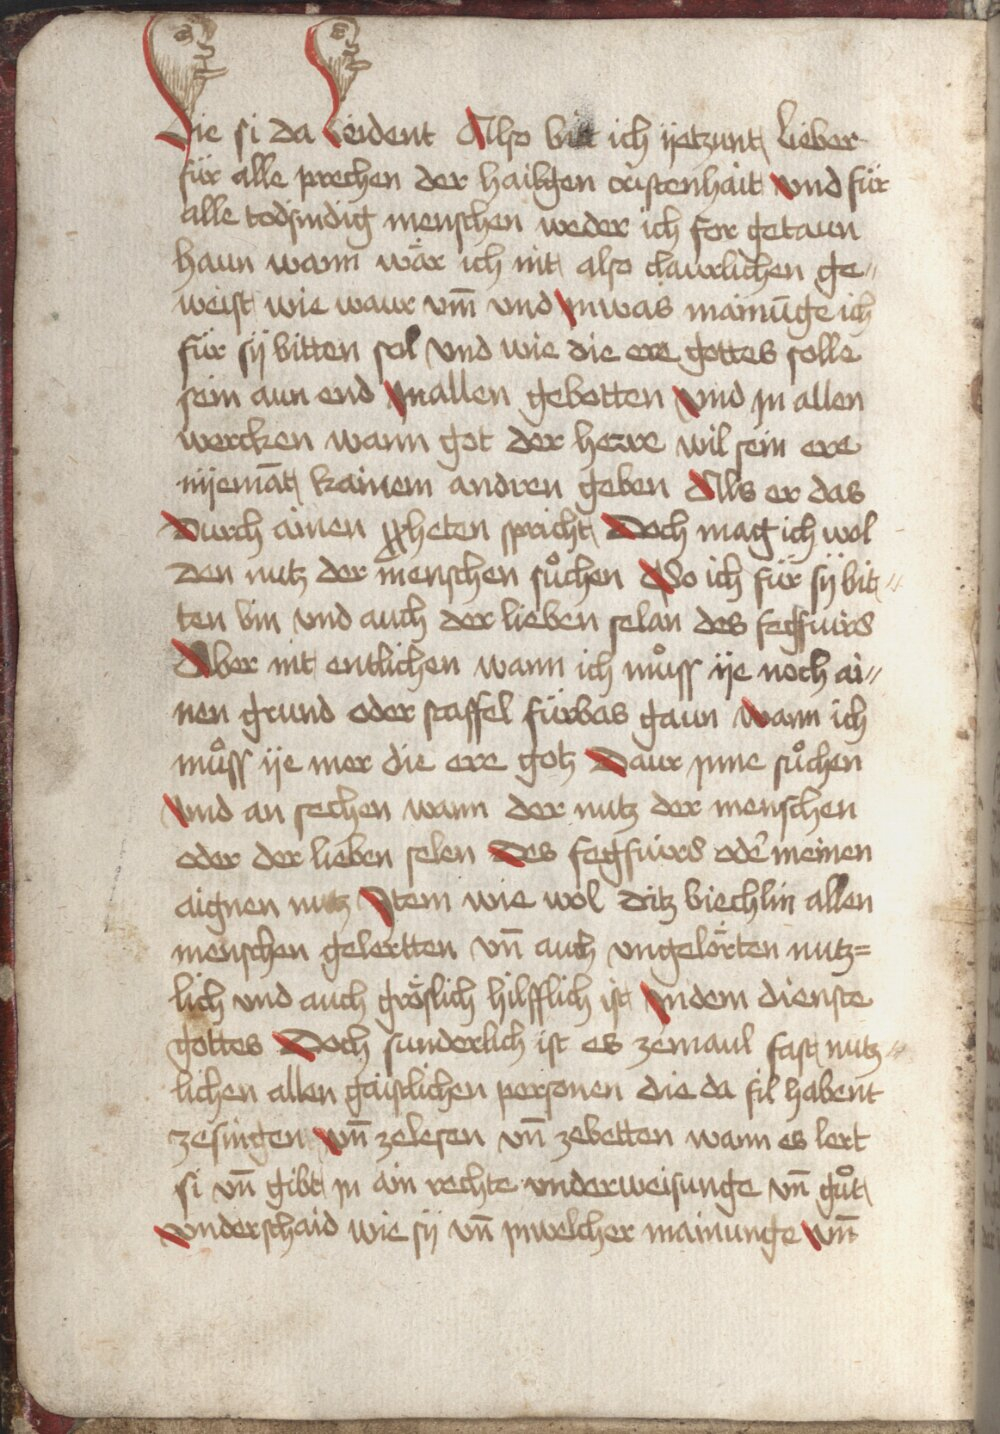 Die si da leident Also bitt ich yetzunt lieber
für alle prechen der hailigen cristenhait Vnd für
alle todsindig menschen weder ich for getaun
haun wann wär ich nit also claurlichen ge〃
weist wie waur vm̄ vnd jnwas mainūge ich
für sÿ bitten sol Vnd wie die ere gottes solle
sein aun end Jnallen gebotten Vnd jn allen
wercken wann got der herre wil sein ere
nÿemāt kainem andren geben Als er das
Durch ainen ꝓpheten spricht Doch mag ich wol
den nutz der menschen sůchen So ich für sÿ bit〃
ten bin vnd auch der lieben selan des fegfuirs
Aber nit entlichen wann ich můss ÿe noch ai〃
nen grund oder staffel fürbas gaun Wann ich
můss ÿe mer die ere gotz Daur jnne sůchen
Vnd an sechen wann der nutz der menschen
oder der lieben selen Des fegfuirs odẽ meinen
aignen nutz Jtem wie wol ditz biechlin allen
menschen gelertten vn̄ auch vngelörten nutz=
lich vnd auch gröslich hilfflich ist Jndem dienste
gottes Doch sunderlich ist es zemaul fast nutz〃
lichen allen gaistlichen personen die da fil habent
zesingen vn̄ zelesen vn̄ zebetten wann es lert
si vn̄ gibt jn ain rechte vnderweisunge vn̄ gůt
Vnderschaid wie sÿ vn̄ jnwelcher mainunge vn̄